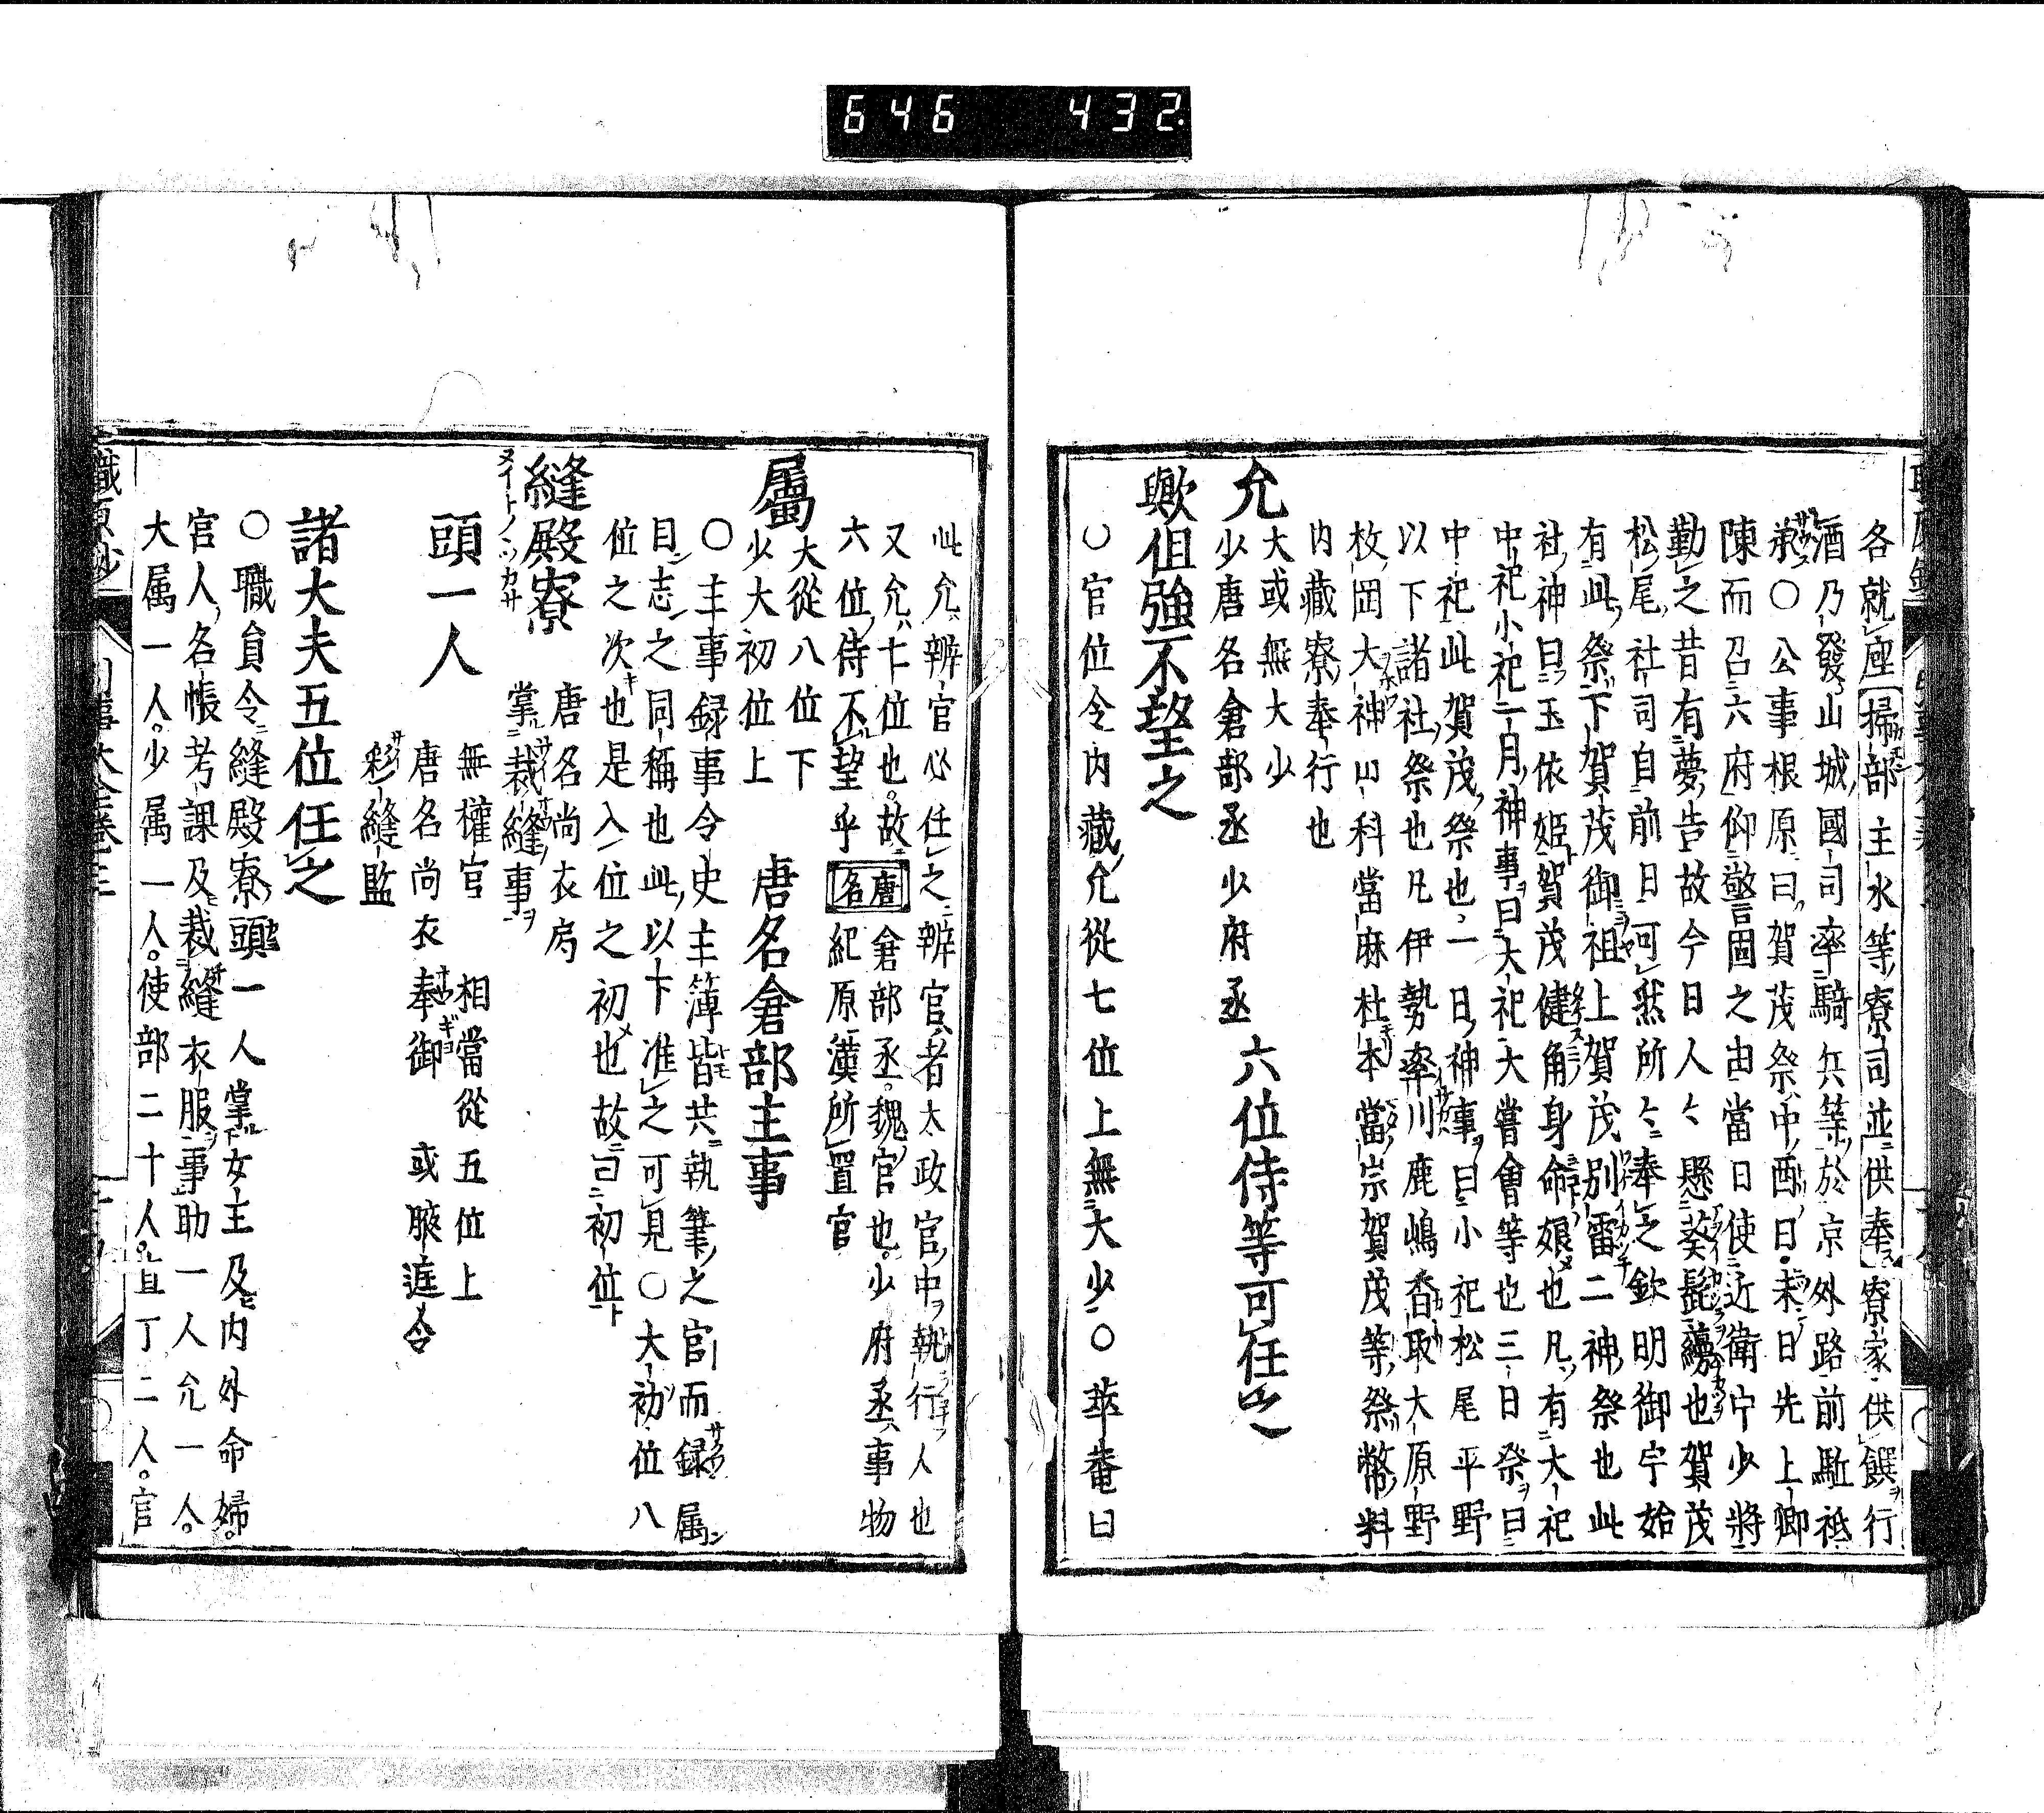 646 432.
各就座掃部主水等寮司並供奉寮家供饌行
酒乃發山城國司率騎兵等於京外路前駈祗
承〇公事根原曰賀茂祭中酉日未日先上卿
陳而召六府仰警固之由當日使近衛中少將
勤之昔有夢告故今日人々懸葵髭蘰也賀茂
松尾社司自前日可然所々奉之欽明御宇始
有此祭下賀茂御祖上賀茂別雷二神祭也此
社神曰玉依姫賀茂健角身命娘也凡有大祀
中祀小祀一月神事曰大祀大嘗會等也三日祭曰
中祀此賀茂祭也一日神事曰小祀松尾平野
以下諸社祭也凡伊勢率川鹿嶋香取大原野
枚岡大神山科當麻杜本當宗賀茂等祭幣料
内藏寮奉行也
允
大或無大少
少唐名倉部丞少府丞
六位侍等可任之
歟但強不望之
〇官位令内藏允從七位上無大少〇萃菴曰
此允辨官必任之辨官者太政官中執行人也
又允七位也故倉部丞魏官也少府丞事物
六位侍不望乎唐名紀原漢所置官
屬
大從八位下
少大初位上
唐名倉部主事
〇主事録事令史主簿皆共執筆之官而録属
目志之同稱也此以下准之可見〇大初位八
位之次也是入位之初也故曰初位
縫殿寮
ヌイトノツカサ
唐名尚衣局
掌裁縫事
頭一人
無權官 相當從五位上
唐名尚衣奉御 或腋庭令
彩縫監
諸大夫五位任之
〇職員令縫殿寮頭一人掌女王及内外命婦
宮人名帳考課及裁縫衣服事助一人允一人
大属一人少属一人使部二十人直丁二人官
職原鈔